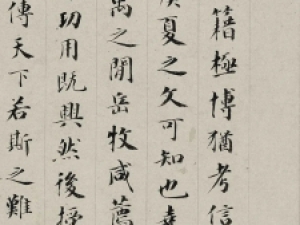 籍極博猶考信
夏之文可知也堯
禹之閒岳牧咸薦
功用既興然後授
傳天下若斯之難